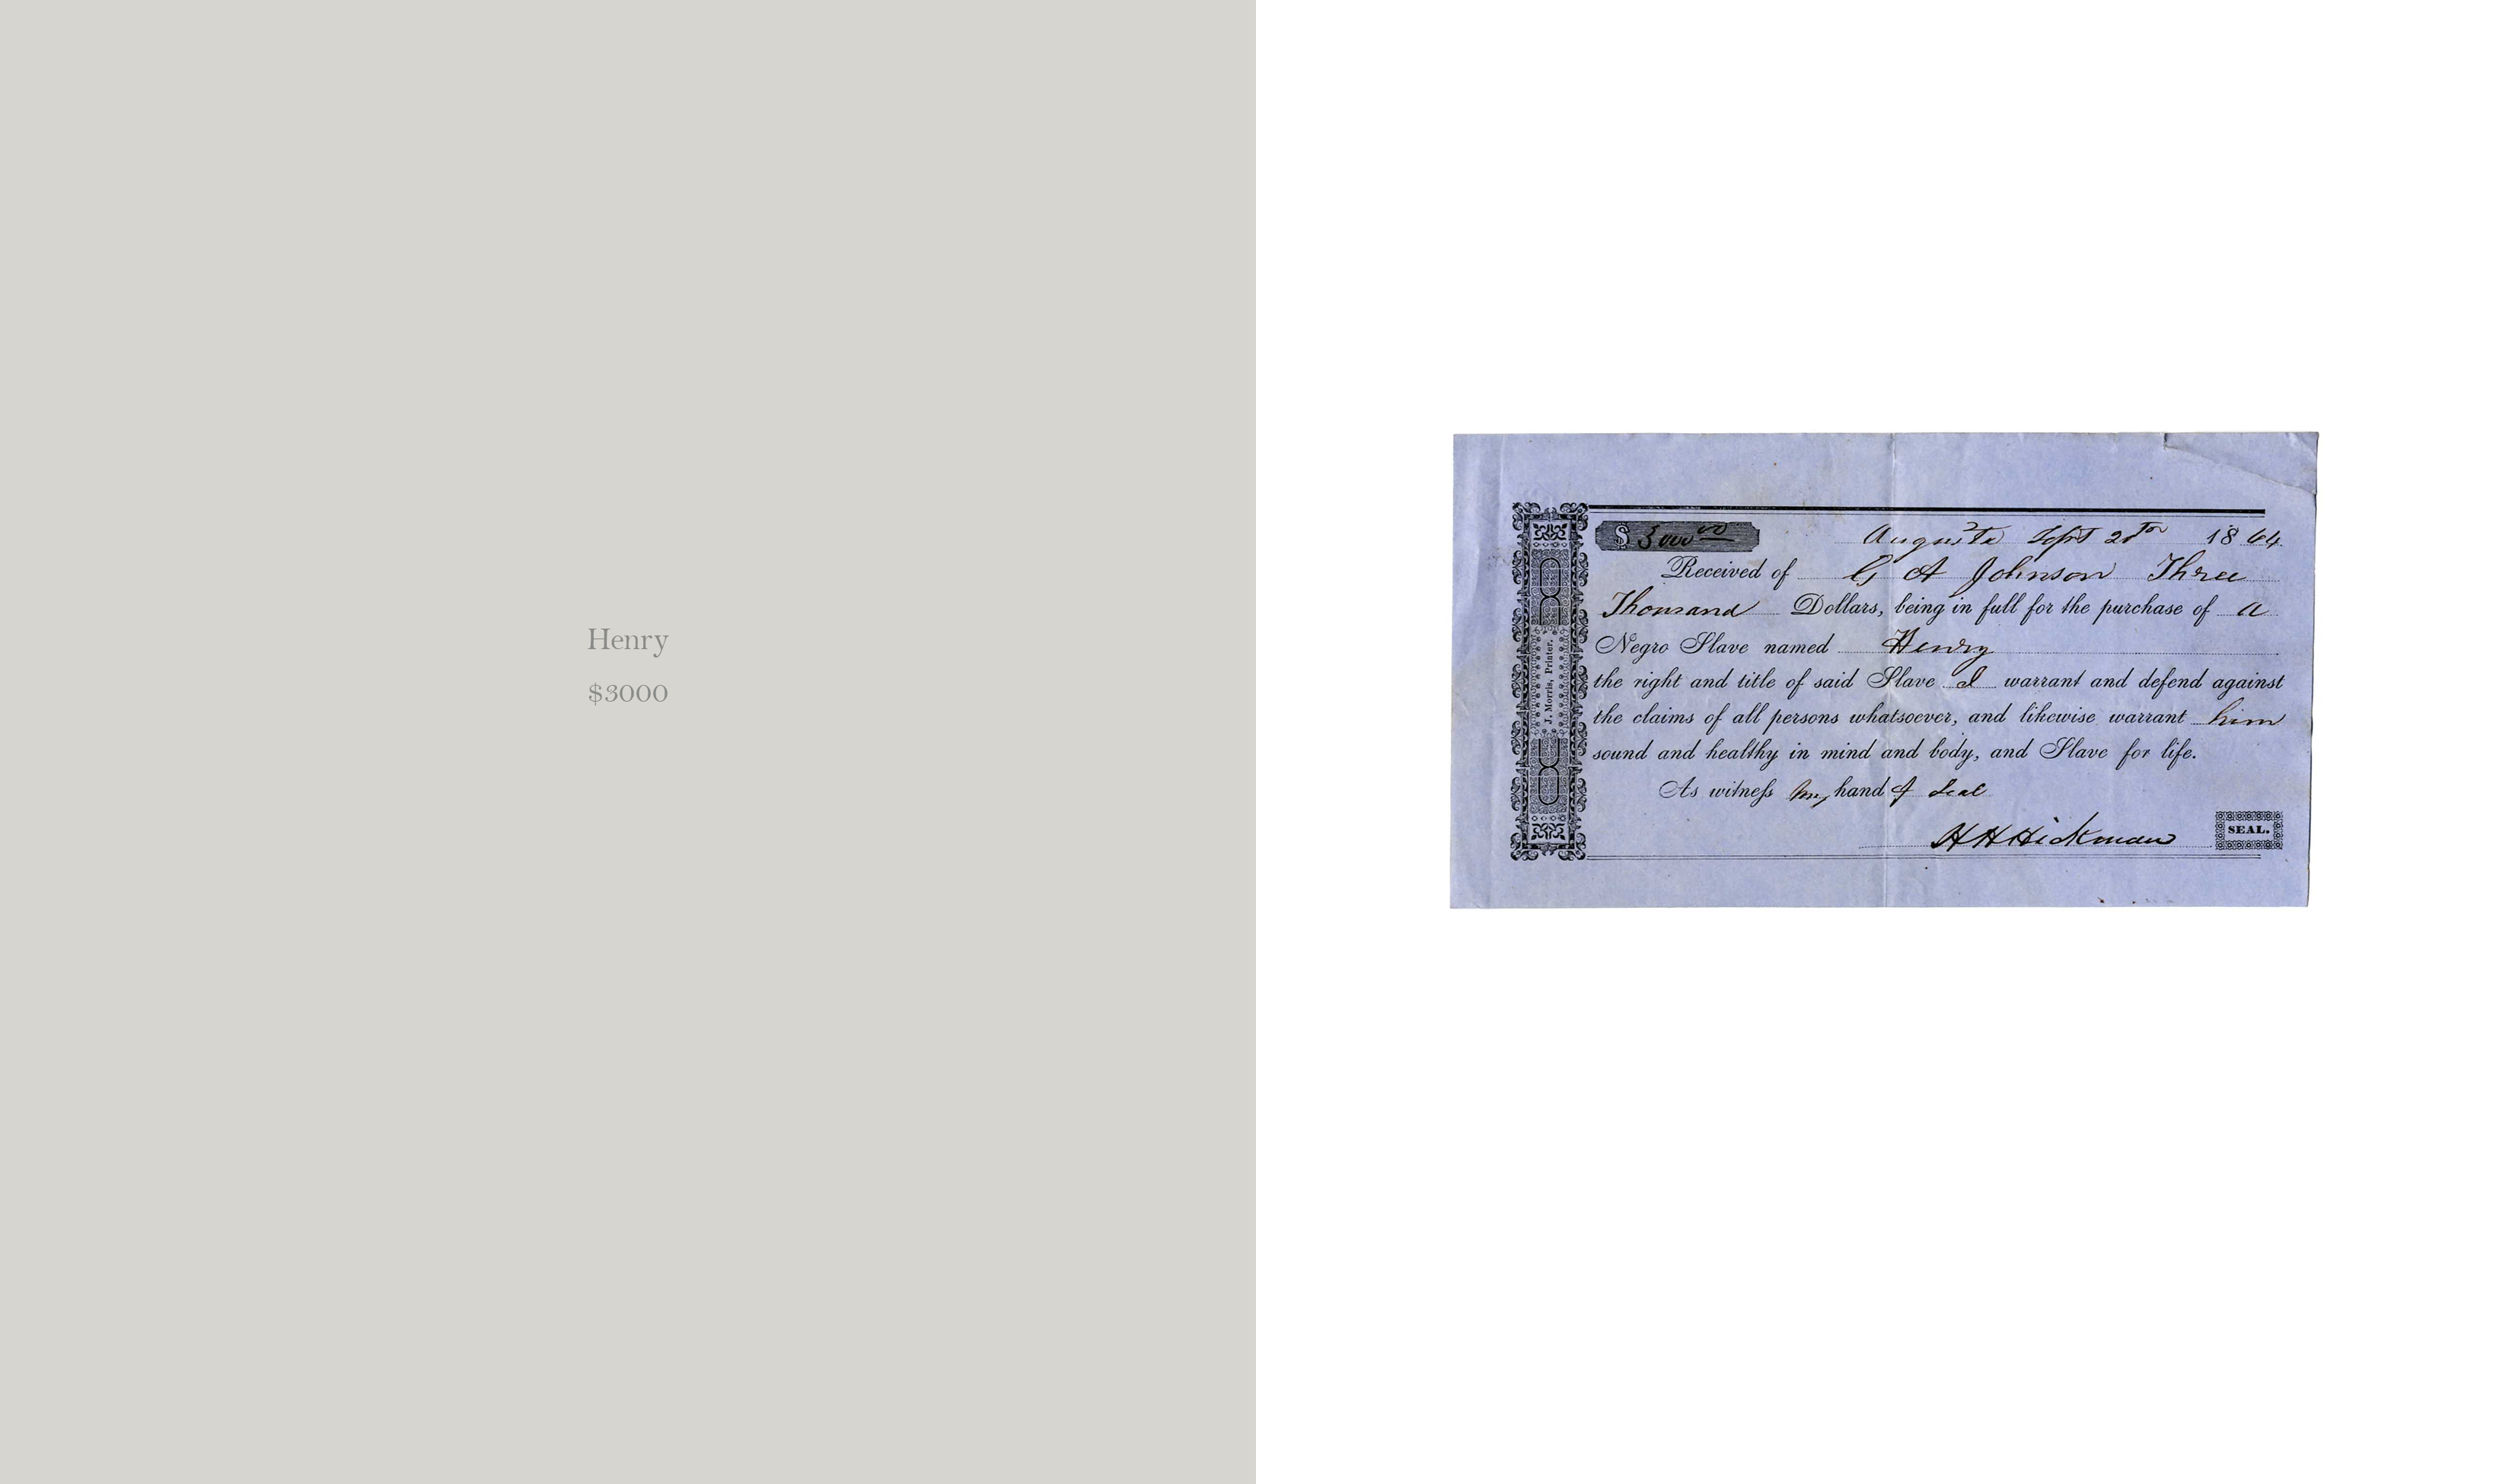 Henry
$3000
$ 3000 00
Augusta Sept 20th 1864
Received of G A Johnson Three
Thousand Dollars, being in full for the purchase of a
Negro Slave named Henry
the right and title of said Slave I warrant and defend against
the claims of all persons whatsoever, and likewise warrant him
sound and healthy in mind and body, and Slave for life.
As witness my hand & Seal
H H Hickman
SEAL.
J. Morris, Printer.